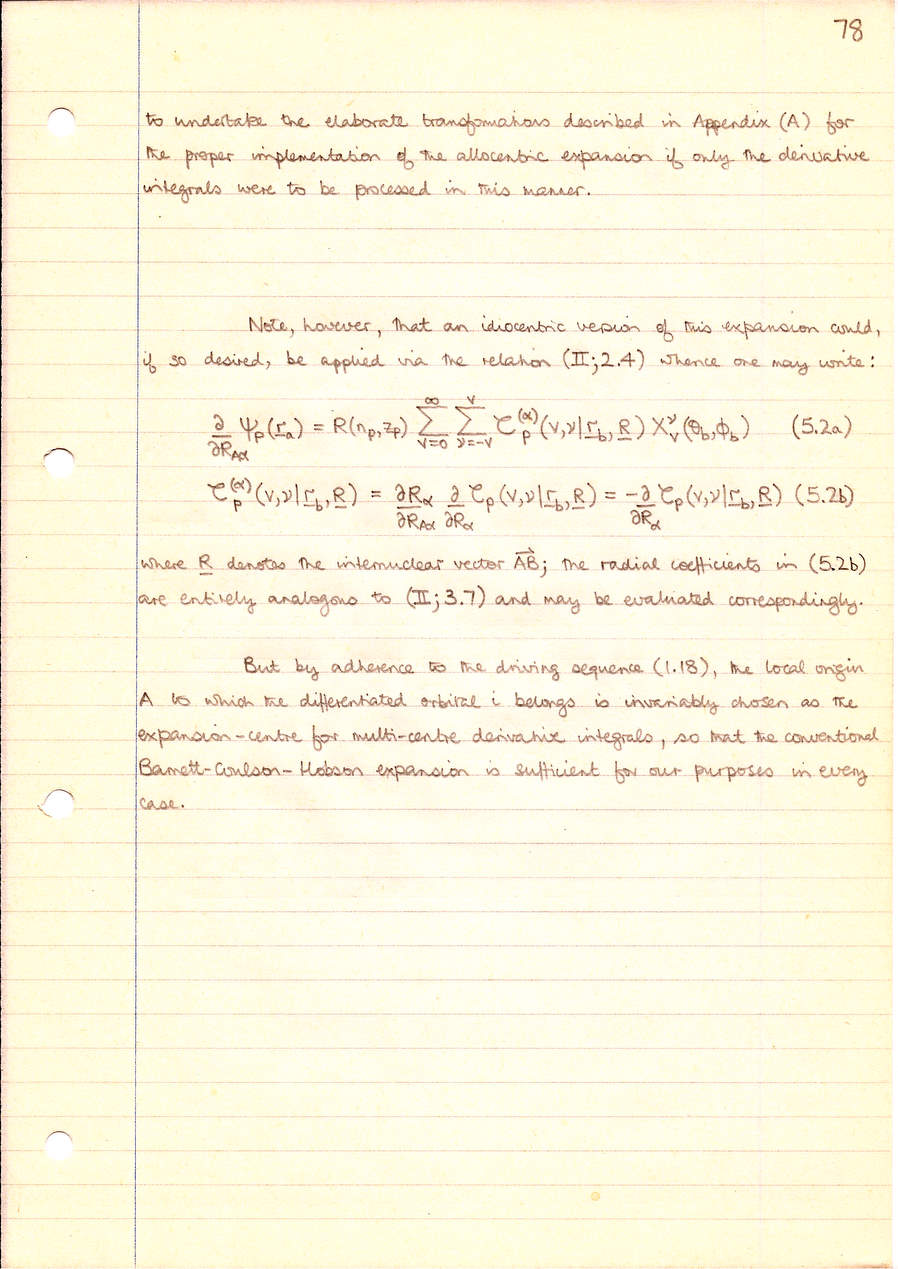 78
to undertake the elaborate transformations described in Appendix (A) for
the proper implementation of the allocentric expansion if only the derivative
integrals were to be processed in this manner.
Note, however, that an idiocentric version of this expansion could,
if so desired, be applied via the relation (II; 2.4) whence one may write:
∂/∂R_Aα ψ_p(r_a) = R(n_p, z_p) ∑_{v=0}^{∞} ∑_{ν=-v}^{v} τ_p^{(α)}(v,ν|r_b, R) X_v^ν(θ_b, ϕ_b) (5.2a)
τ_p^{(α)}(v,ν|r_b, R) = ∂R_α/∂R_Aα ∂/∂R_α τ_p(v,ν|r_b, R) = -∂/∂R_α τ_p(v,ν|r_b, R) (5.2b)
where R denotes the internuclear vector AB; the radial coefficients in (5.2b)
are entirely analogous to (II; 3.7) and may be evaluated correspondingly.
But by adherence to the driving sequence (1.18), the local origin
A to which the differentiated orbital i belongs is invariably chosen as the
expansion-centre for multi-centre derivative integrals, so that the conventional
Barnett-Coulson-Hobson expansion is sufficient for our purposes in every
case.